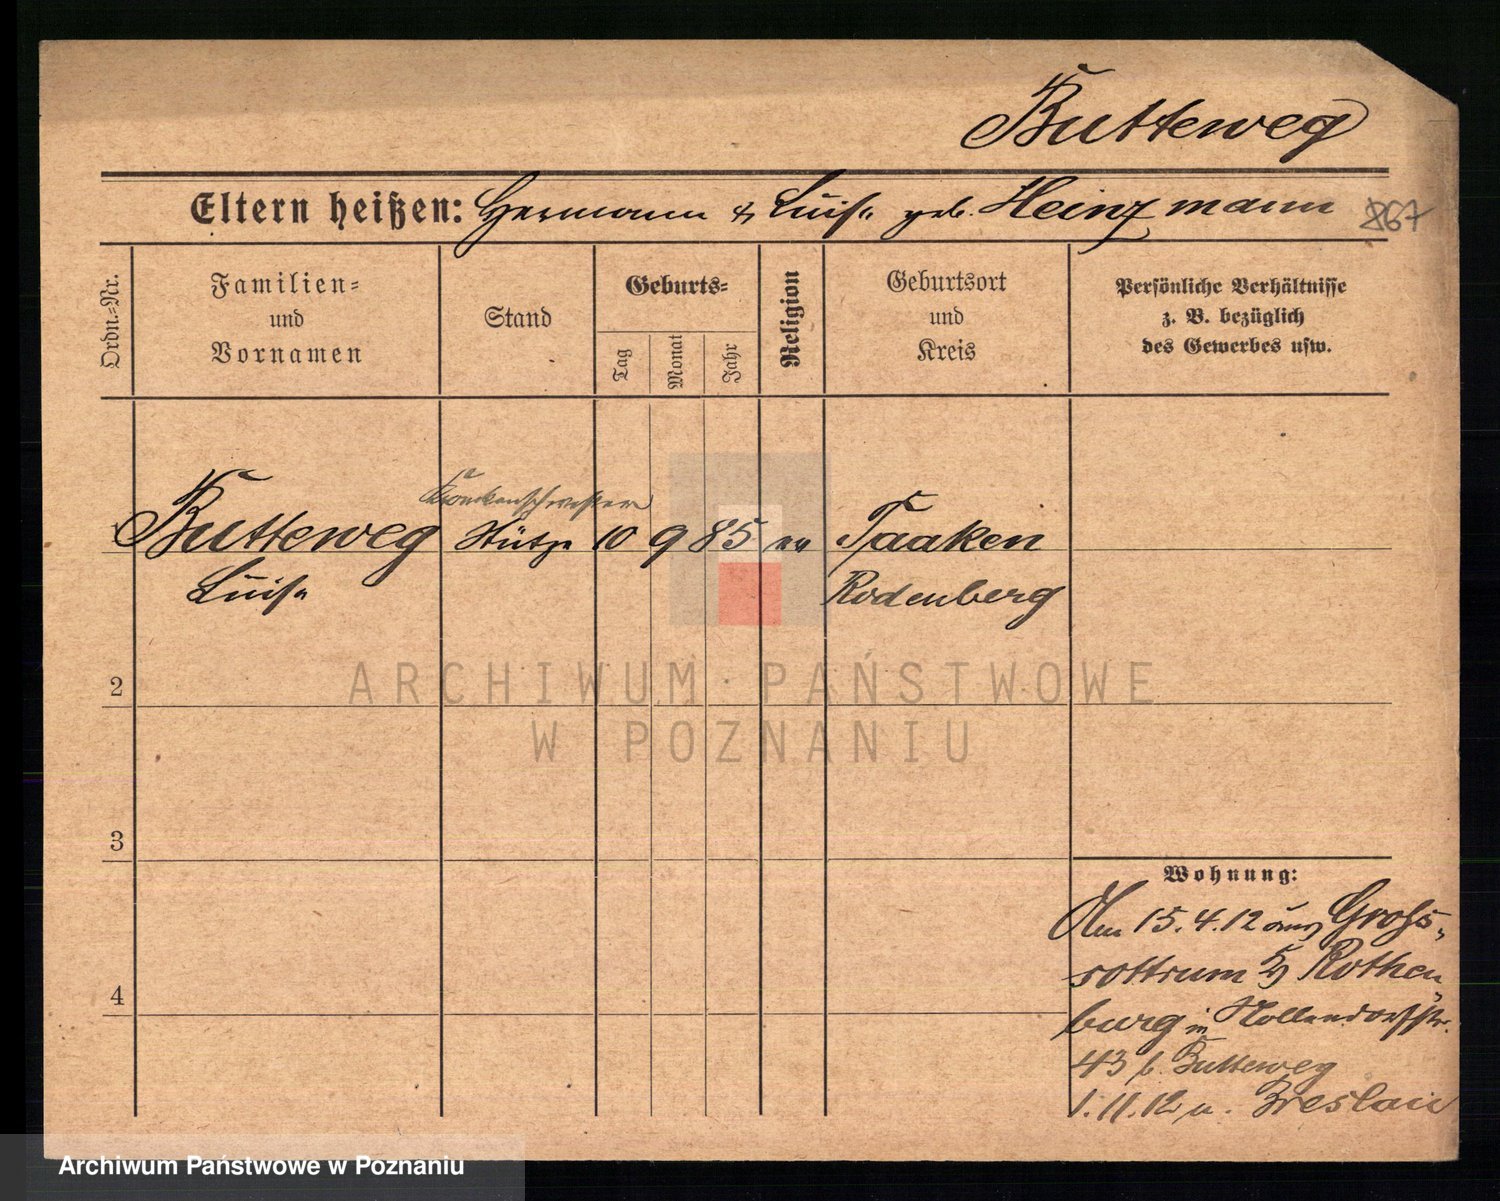 Butteweg
Eltern heißen: Hermann & Luise geb. Heinzmann 867
Ordn.-Nr.
Familien- und Vornamen
Stand
Geburts-
Tag
Monat
Jahr
Religion
Geburtsort und Kreis
Persönliche Verhältnisse
z. B. bezüglich
des Gewerbes usw.
Krankenschwester
1 Butteweg Stütze 10 9 85 ev Taaken
Luise Rodenberg
ARCHIWUM PAŃSTWOWE
W POZNANIU
2
3
4
Wohnung:
Am 15.4.12 aus Gross-
rottrum Rothen
burg in Nollendorfstr.
43 b. Butteweg
1.11.12 n. Breslau
Archiwum Państwowe w Poznaniu